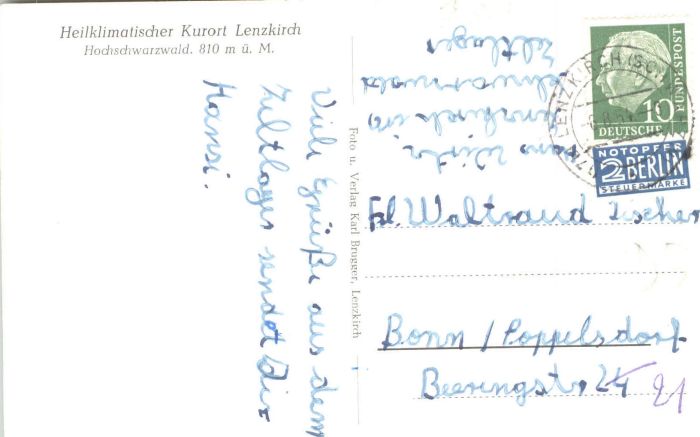 Heilklimatischer Kurort Lenzkirch
Hochschwarzwald. 810 m ü. M.
Viele Grüße aus dem
Zeltlager sendet Dir
Hansi.
Foto u. Verlag Karl Brugger, Lenzkirch
Lenzkirch
Schwarzwald
Zeltlager
LENZKIRCH
10
DEUTSCHE
BUNDESPOST
NOTOPFER
2 BERLIN
STEUERMARKE
Frl. Waltraud Fischer
Bonn / Poppelsdorf
Beeringstr. 24
21